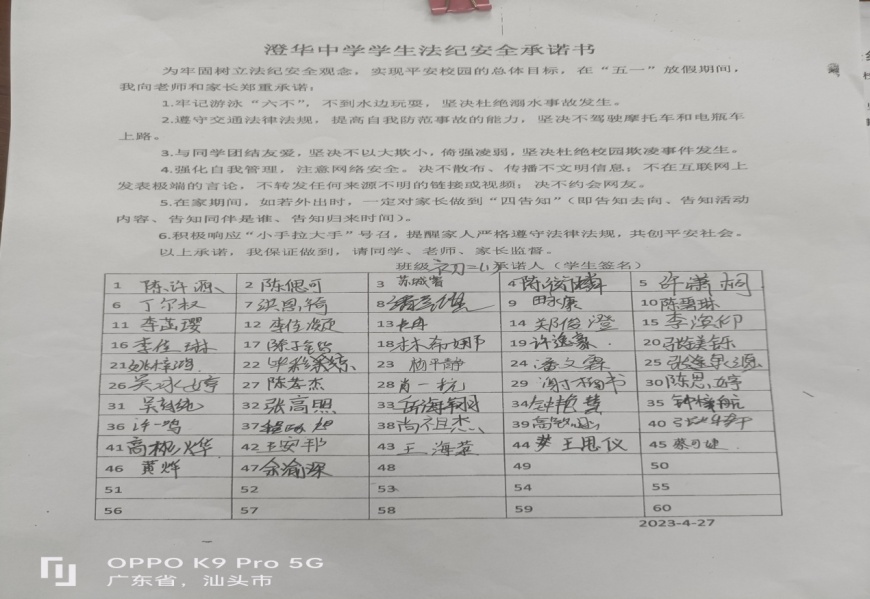 澄华中学学生法纪安全承诺书
为牢固树立法纪安全观念，实现平安校园的总体目标，在“五一”放假期间，
我向老师和家长郑重承诺：
1.牢记游泳“六不”，不到水边玩耍，坚决杜绝溺水事故发生。
2.遵守交通法律法规，提高自我防范事故的能力，坚决不驾驶摩托车和电瓶车
上路。
3.与同学团结友爱，坚决不以大欺小，倚强凌弱，坚决杜绝校园欺凌事件发生。
4.强化自我管理，注意网络安全。决不散布、传播不文明信息；不在互联网上
发表极端的言论，不转发任何来源不明的链接或视频；决不约会网友。
5.在家期间，如若外出时，一定对家长做到“四告知”（即告知去向、告知活动
内容、告知同伴是谁、告知归来时间）。
6.积极响应“小手拉大手”号召，提醒家人严格遵守法律法规，共创平安社会。
以上承诺，我保证做到，请同学、老师、家长监督。
班级 初二 承诺人（学生签名）
1 2 陈偲可 3 4 5
6 丁尔权 7 洪恩绮 8 9 田永康 10 陈碧琳
11 李茁璎 12 13 14 郑俊澄 15 李滨仰
16 李佳琳 17 18 林希娜 19 许逸豪 20
21 22 23 杨平静 24 潘文霖 25
26 吴冰婷 27 陈梦杰 28 肖一杭 29 30 陈思婷
31 32 张高照 33 34 钟艳慧 35 钟梓航
36 许一鸣 37 38 尚祖杰 39 40
41 42 王安邦 43 王海燕 44 王思仪 45
46 黄烨 47 余瀚琛 48 49 50
51 52 53 54 55
56 57 58 59 60
2023-4-27
OPPO K9 Pro 5G
广东省，汕头市